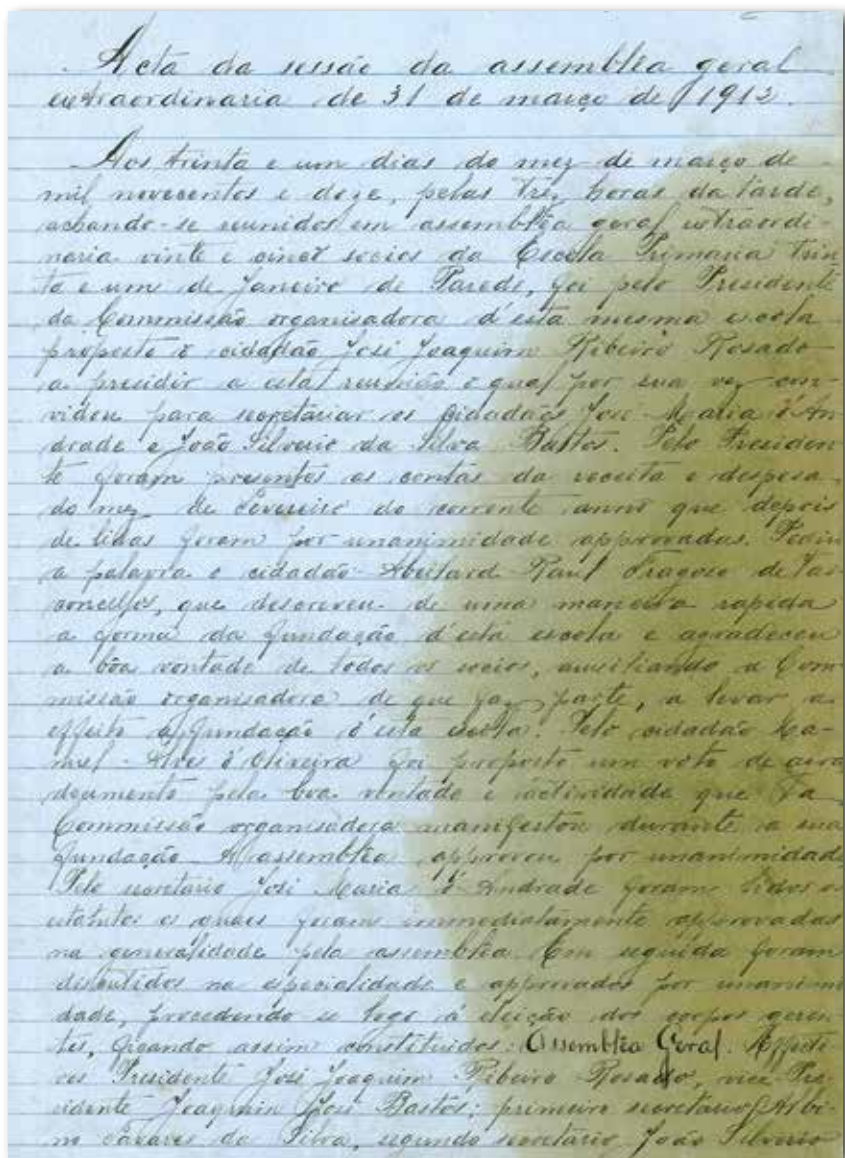 Acta da sessão da assembléa geral
extraordinaria de 31 de março de 1912.
Aos trinta e um dias do mez de março de
mil novecentos e doze, pelas trez horas da tarde,
achando-se reunidos em assembléa geral extraordi-
naria vinte e cinco socios da Escola Primaria Trin-
ta e um de Janeiro de Parede, foi pelo Presidente
da Commissão organisadora d'esta mesma escola
proposto o cidadão José Joaquim Ribeiro Rosado
a presidir a esta reunião o qual por sua vez con-
vidou para secretariar os cidadãos José Maria d'An-
drade e João Silverio da Silva Bastos. Pelo Presiden-
te foram presentes as contas da receita e despesa
do mez de Fevereiro do corrente anno que depois
de lidas foram por unanimidade approvadas. Pediu
a palavra o cidadão Abeilard Raul Fragoso de Vas-
concellos, que descreveu de uma maneira rapida
a forma da fundação d'esta escola e agradeceu
a bôa vontade de todos os socios, auxiliando a Com-
missão organisadora de que faz parte, a levar a
effeito a fundação d'esta escola. Pelo cidadão Ma-
nuel Alves d'Oliveira foi proposto um voto de agra-
decimento pela boa vontade e actividade que a
Commissão organisadora manifestou durante a sua
fundação. A assembléa approvou por unanimidade
Pelo secretario José Maria d'Andrade foram lidos os
estatutos os quaes foram immediatamente approvados
na generalidade pela assembléa. Em seguida foram
discutidos na especialidade e approvados por unanimi
dade, procedendo se logo á eleição dos corpos geren-
tes, ficando assim constituidos: Assembléa Geral. Effecti-
vos Presidente José Joaquim Ribeiro Rosado, vice Pre-
sidente Joaquim José Bastos; primeiro secretario Albi-
no Tavares da Silva, segundo secretario João Silverio